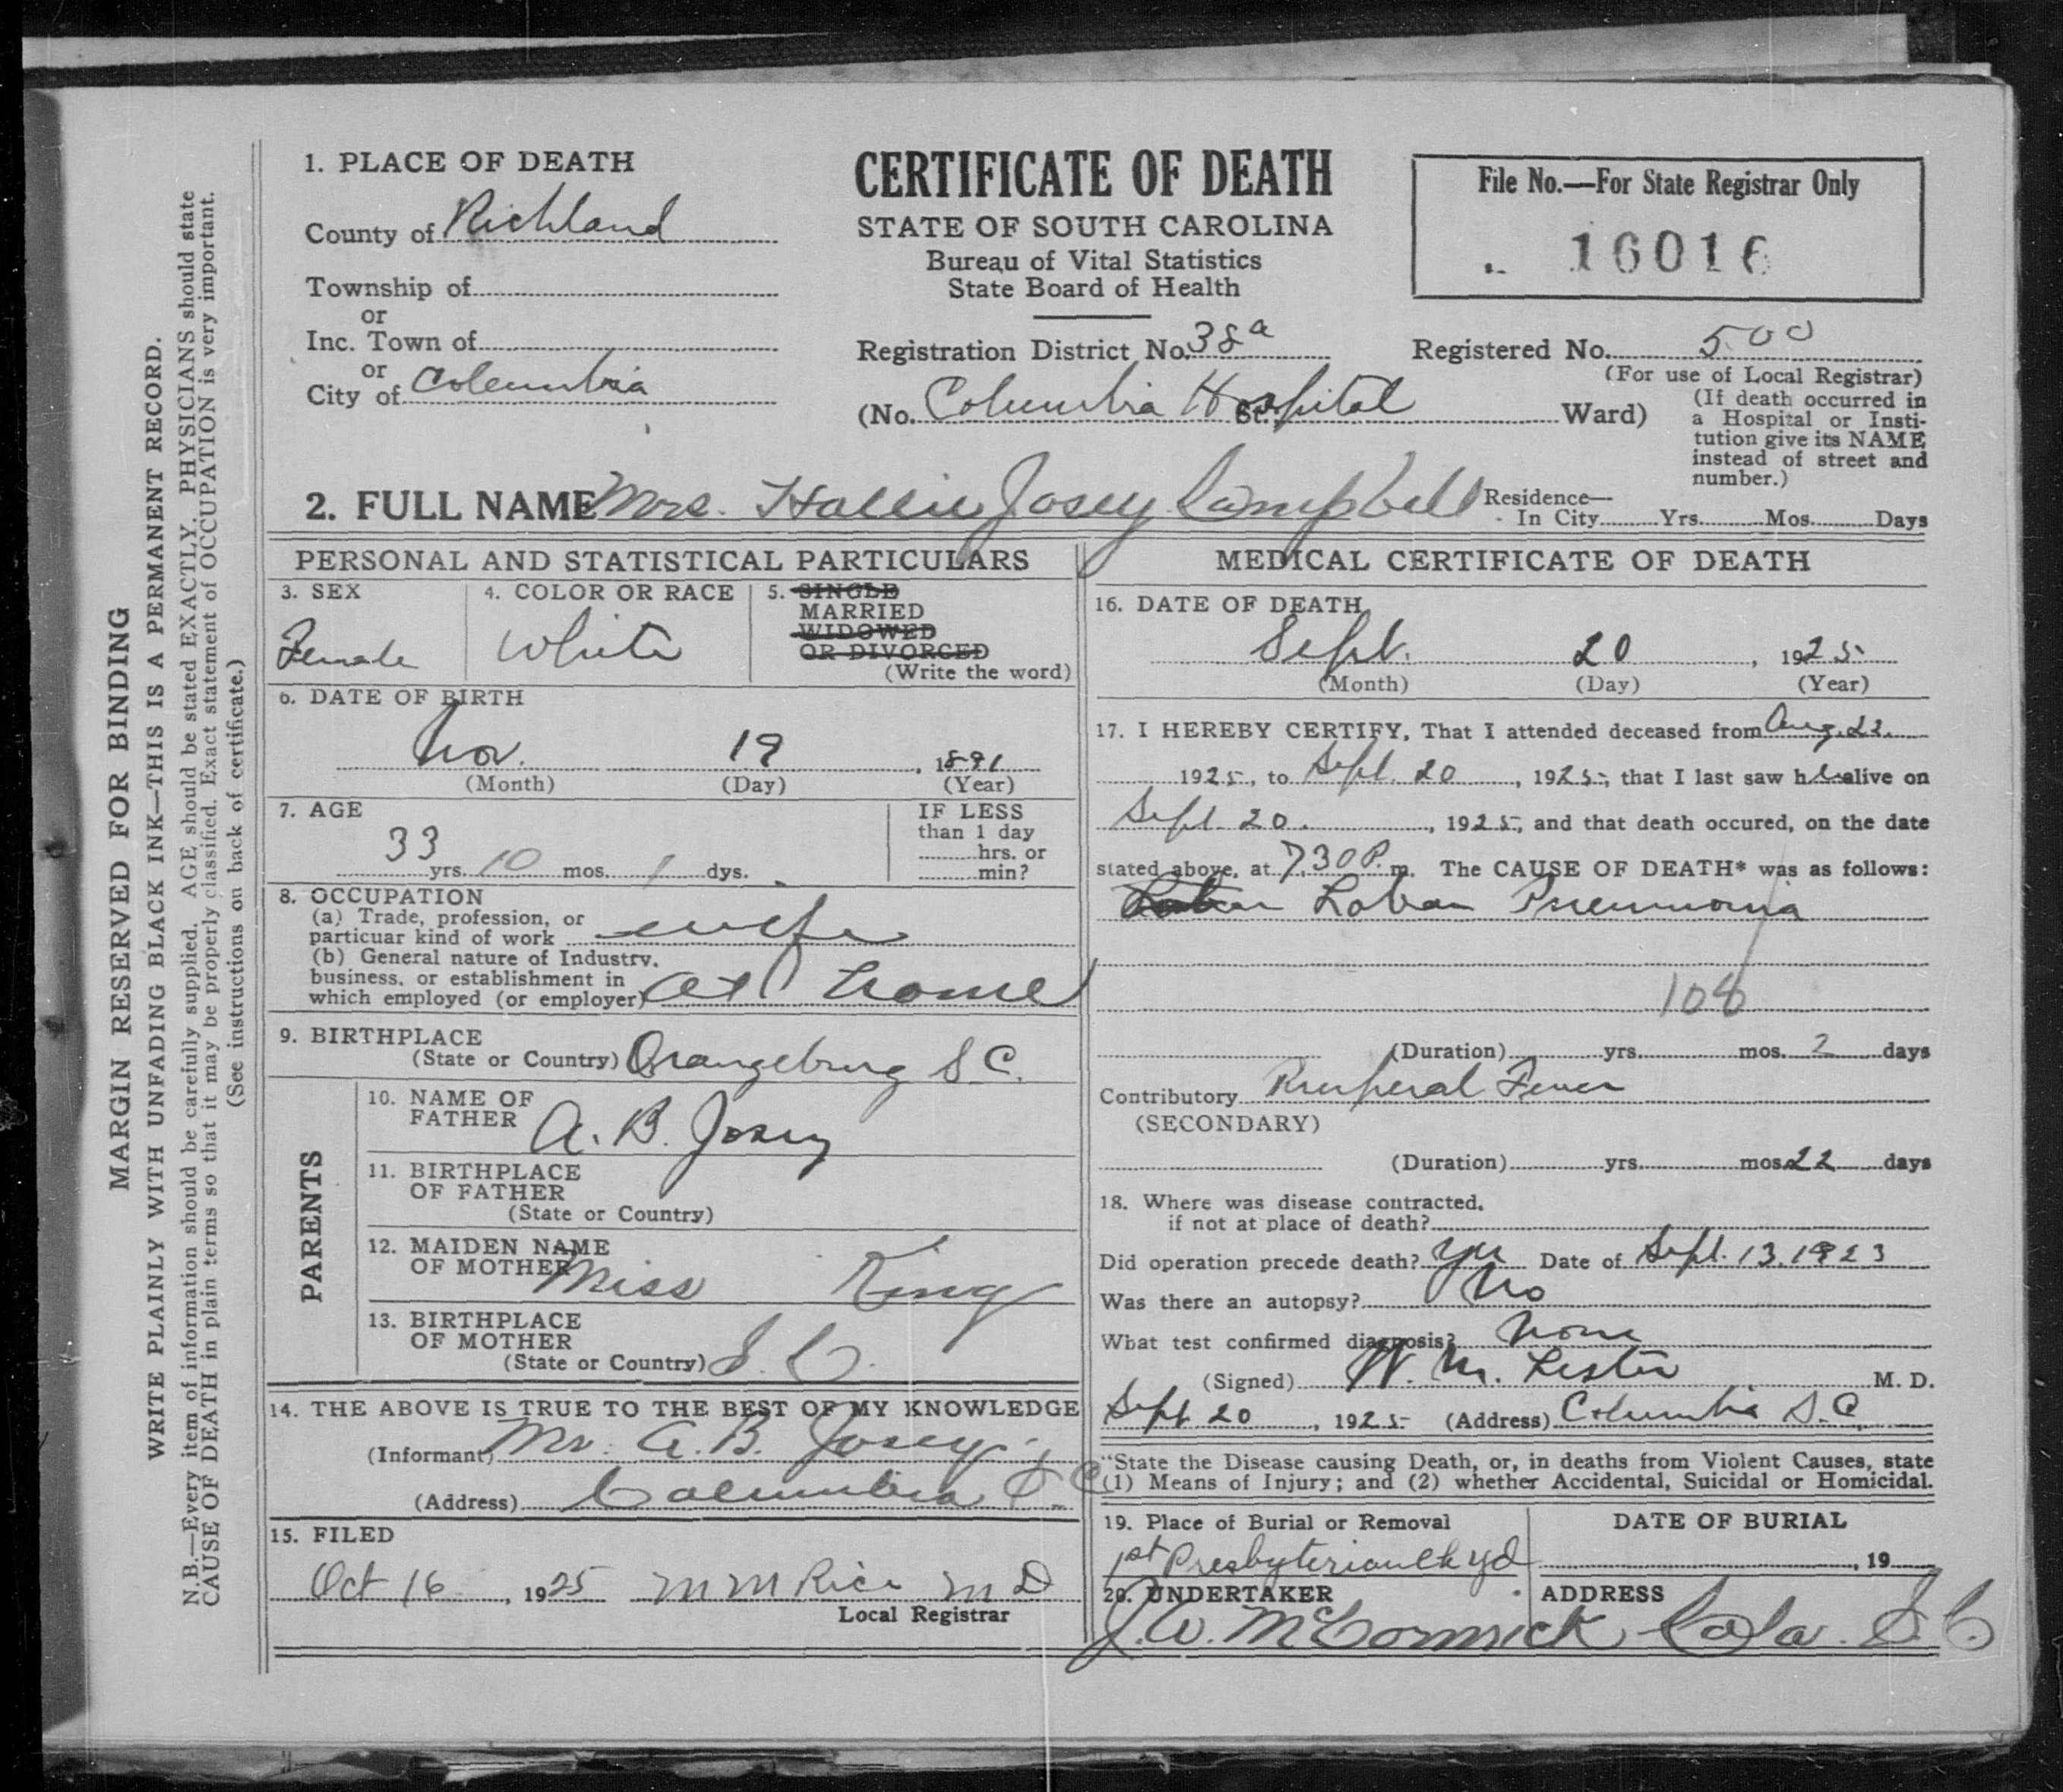 MARGIN RESERVED FOR BINDING
WRITE PLAINLY WITH UNFADING BLACK INK—THIS IS A PERMANENT RECORD.
N.B.—Every item of information should be carefully supplied. AGE should be stated EXACTLY. PHYSICIANS should state
CAUSE OF DEATH in plain terms so that it may be properly classified. Exact statement of OCCUPATION is very important.
(See instructions on back of certificate.)
1. PLACE OF DEATH
County of Richland
Township of
or
Inc. Town of
or
City of Columbia
CERTIFICATE OF DEATH
STATE OF SOUTH CAROLINA
Bureau of Vital Statistics
State Board of Health
Registration District No. 38a
(No. Columbia Hospital St., Ward)
File No.—For State Registrar Only
16016
Registered No. 500
(For use of Local Registrar)
(If death occurred in
a Hospital or Insti-
tution give its NAME
instead of street and
number.)
2. FULL NAME Mrs. Hallie Josey Campbell
Residence—
In City Yrs. Mos. Days
PERSONAL AND STATISTICAL PARTICULARS
3. SEX
Female
4. COLOR OR RACE
White
5. SINGLE
MARRIED
WIDOWED
OR DIVORCED
(Write the word)
6. DATE OF BIRTH
Nov. 19, 1891
(Month) (Day) (Year)
7. AGE
33 yrs. 10 mos. 1 dys.
IF LESS
than 1 day
hrs. or
min?
8. OCCUPATION
(a) Trade, profession, or
particuar kind of work wife
(b) General nature of Industry,
business, or establishment in
which employed (or employer) at home
9. BIRTHPLACE
(State or Country) Orangeburg S.C.
PARENTS
10. NAME OF
FATHER A. B. Josey
11. BIRTHPLACE
OF FATHER
(State or Country)
12. MAIDEN NAME
OF MOTHER Miss King
13. BIRTHPLACE
OF MOTHER
(State or Country) S. C.
14. THE ABOVE IS TRUE TO THE BEST OF MY KNOWLEDGE
(Informant) Mr. A. B. Josey
(Address) Columbia S C
15. FILED
Oct 16, 1925 M M Rice M D
Local Registrar
MEDICAL CERTIFICATE OF DEATH
16. DATE OF DEATH
Sept. 20, 1925
(Month) (Day) (Year)
17. I HEREBY CERTIFY, That I attended deceased from Aug. 22.
1925, to Sept. 20, 1925, that I last saw her alive on
Sept 20., 1925, and that death occured, on the date
stated above, at 7.30 P. m. The CAUSE OF DEATH* was as follows:
Lobar Pneumonia
108
(Duration) yrs. mos. 2 days
Contributory Puerperal Fever
(SECONDARY)
(Duration) yrs. mos. 22 days
18. Where was disease contracted,
if not at place of death?
Did operation precede death? Yes Date of Sept. 13, 1923
Was there an autopsy? No
What test confirmed diagnosis? None
(Signed) W. M. Lester M. D.
Sept 20, 1925 (Address) Columbia S.C.
*State the Disease causing Death, or, in deaths from Violent Causes, state
(1) Means of Injury; and (2) whether Accidental, Suicidal or Homicidal.
19. Place of Burial or Removal
1st Presbyterian Ch yd
DATE OF BURIAL
, 19
20. UNDERTAKER
J. W. McCormick
ADDRESS
Cola. S.C.